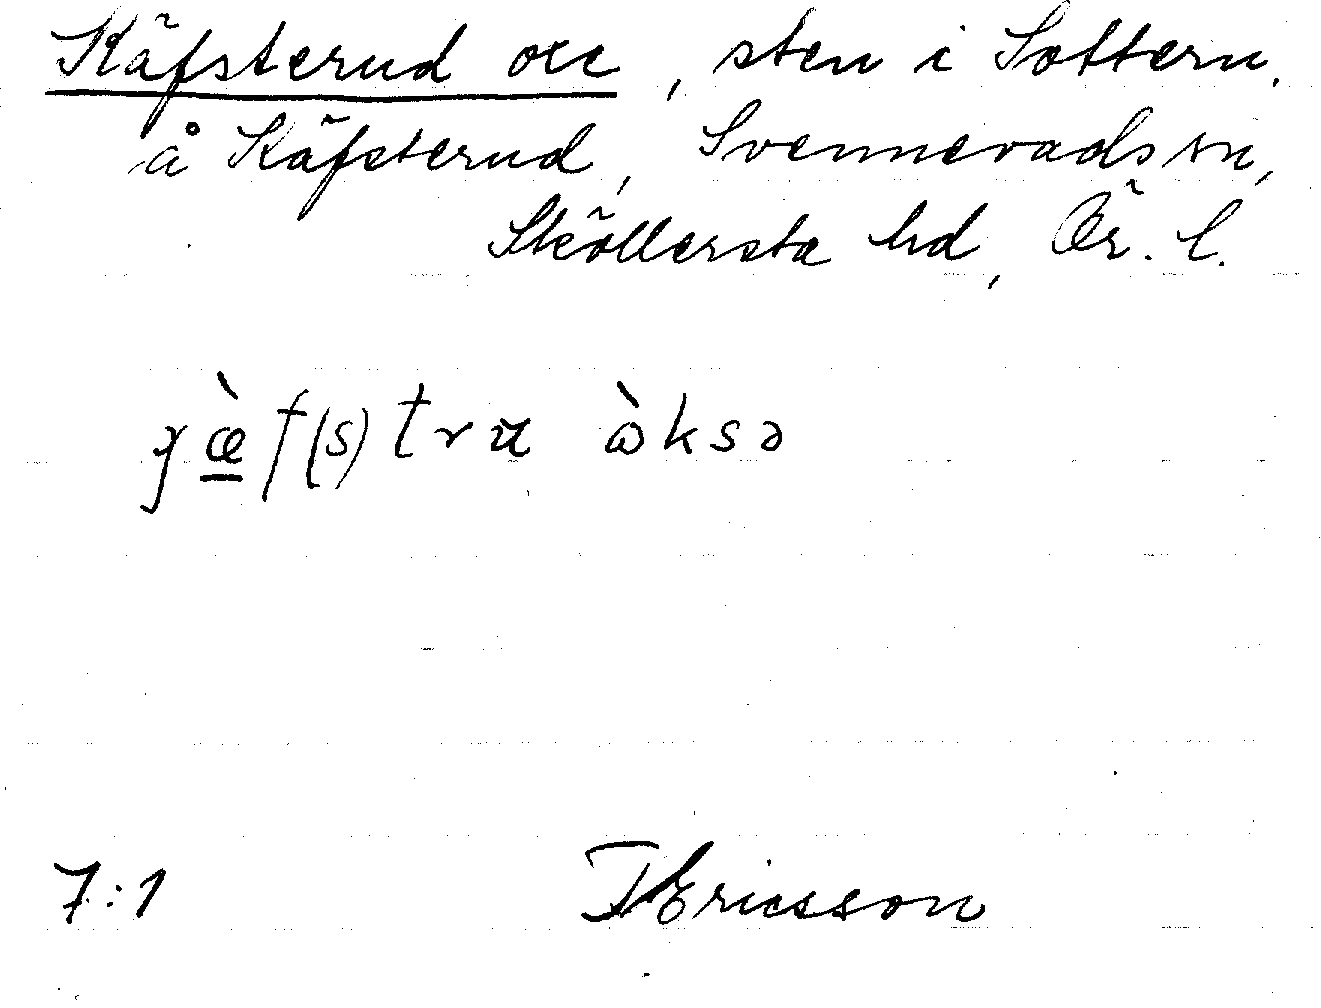 Käfsterud oxe, sten i Sottern.
å Käfsterud, Svennevads sn,
Sköllersta hd, Ör. l.
œ̀f(s)tru ὼksə
7:1 Ericsson